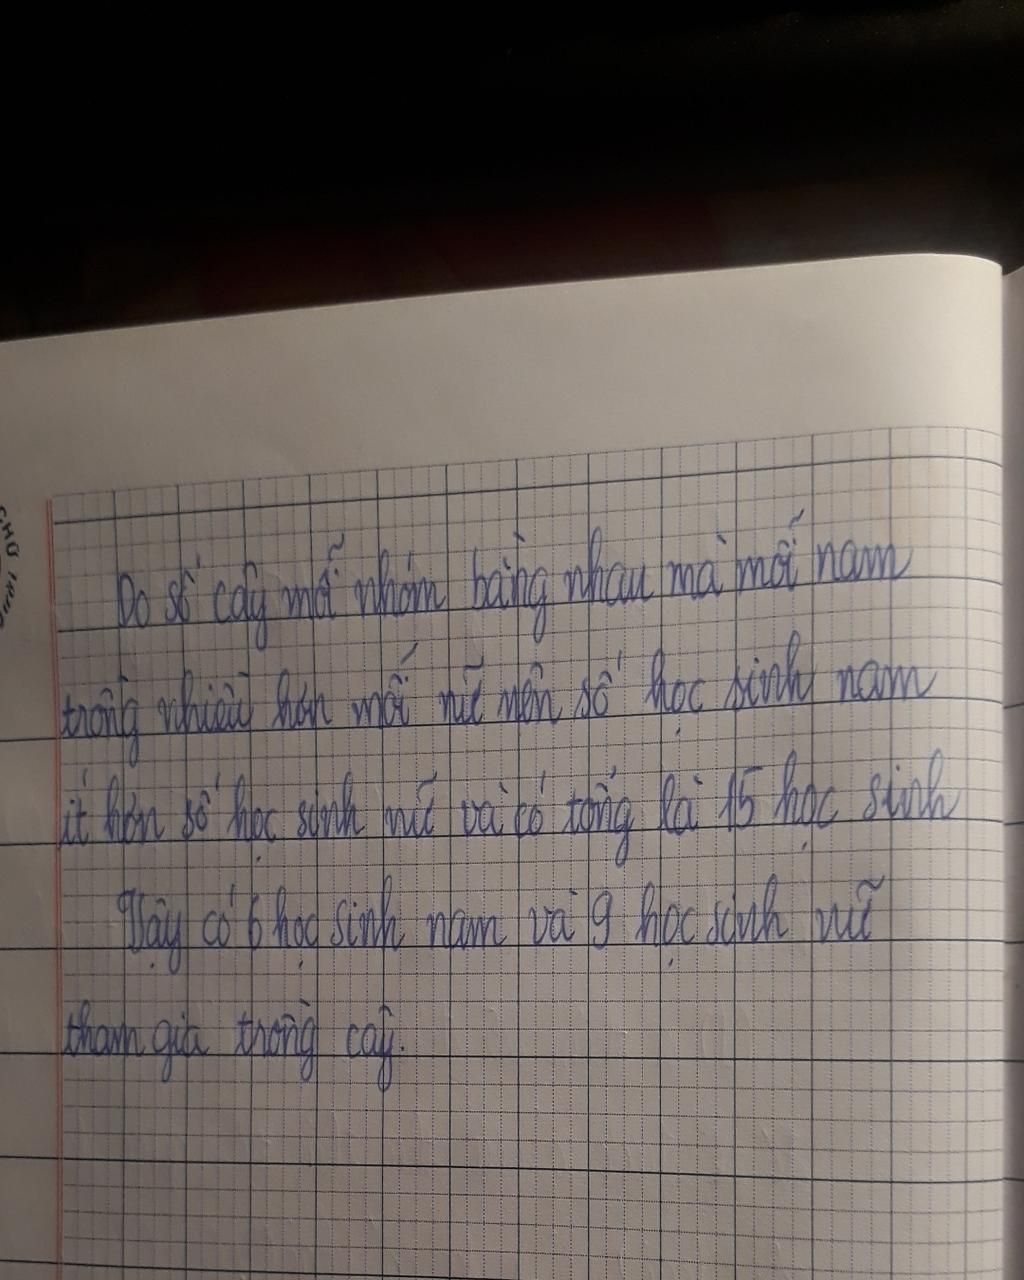 Do số cây mỗi nhóm bằng nhau mà mỗi nam
trồng nhiều hơn mỗi nữ nên số học sinh nam
ít hơn số học sinh nữ và có tổng là 15 học sinh
Vậy có 6 học sinh nam và 9 học sinh nữ
tham gia trồng cây.